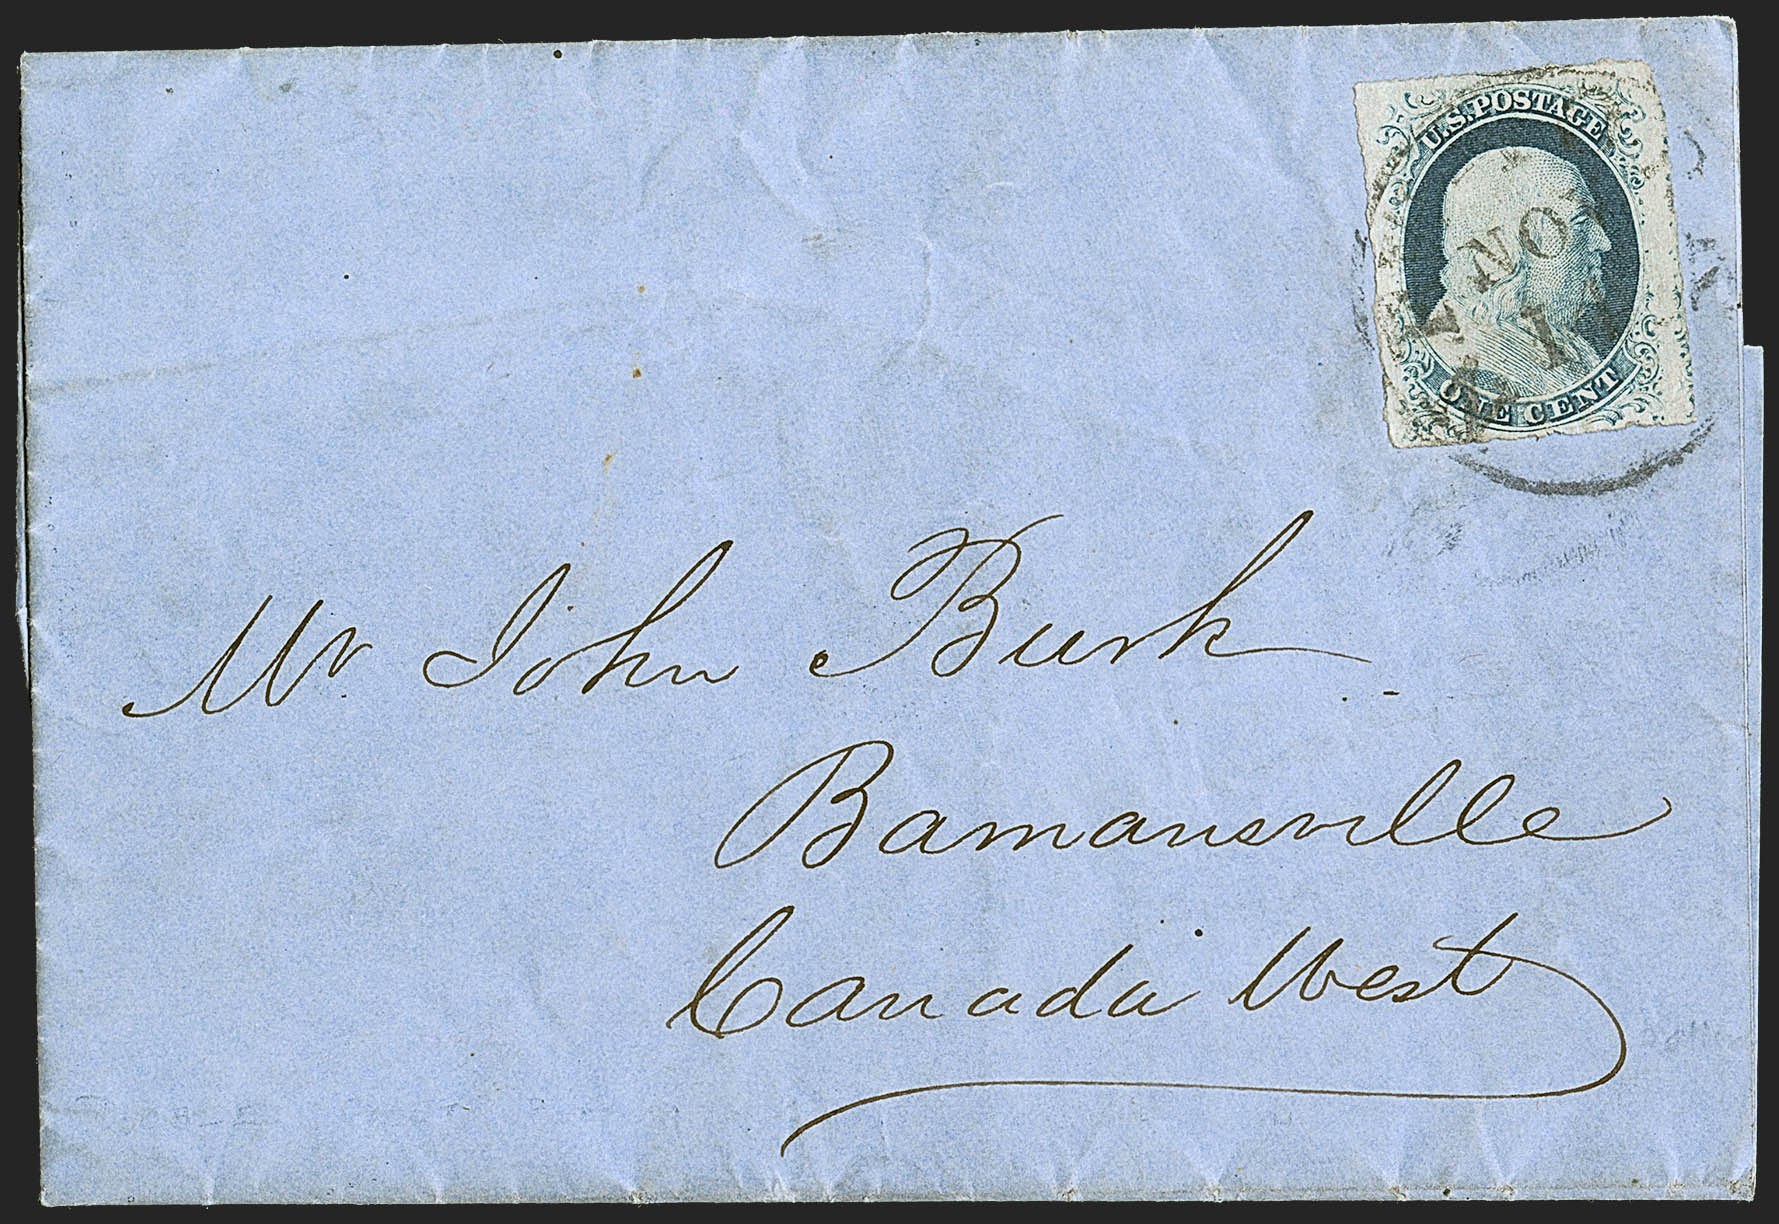 U.S. POSTAGE
NO
1
ONE CENT
Mr. John Burk
Bamansville
Canada West